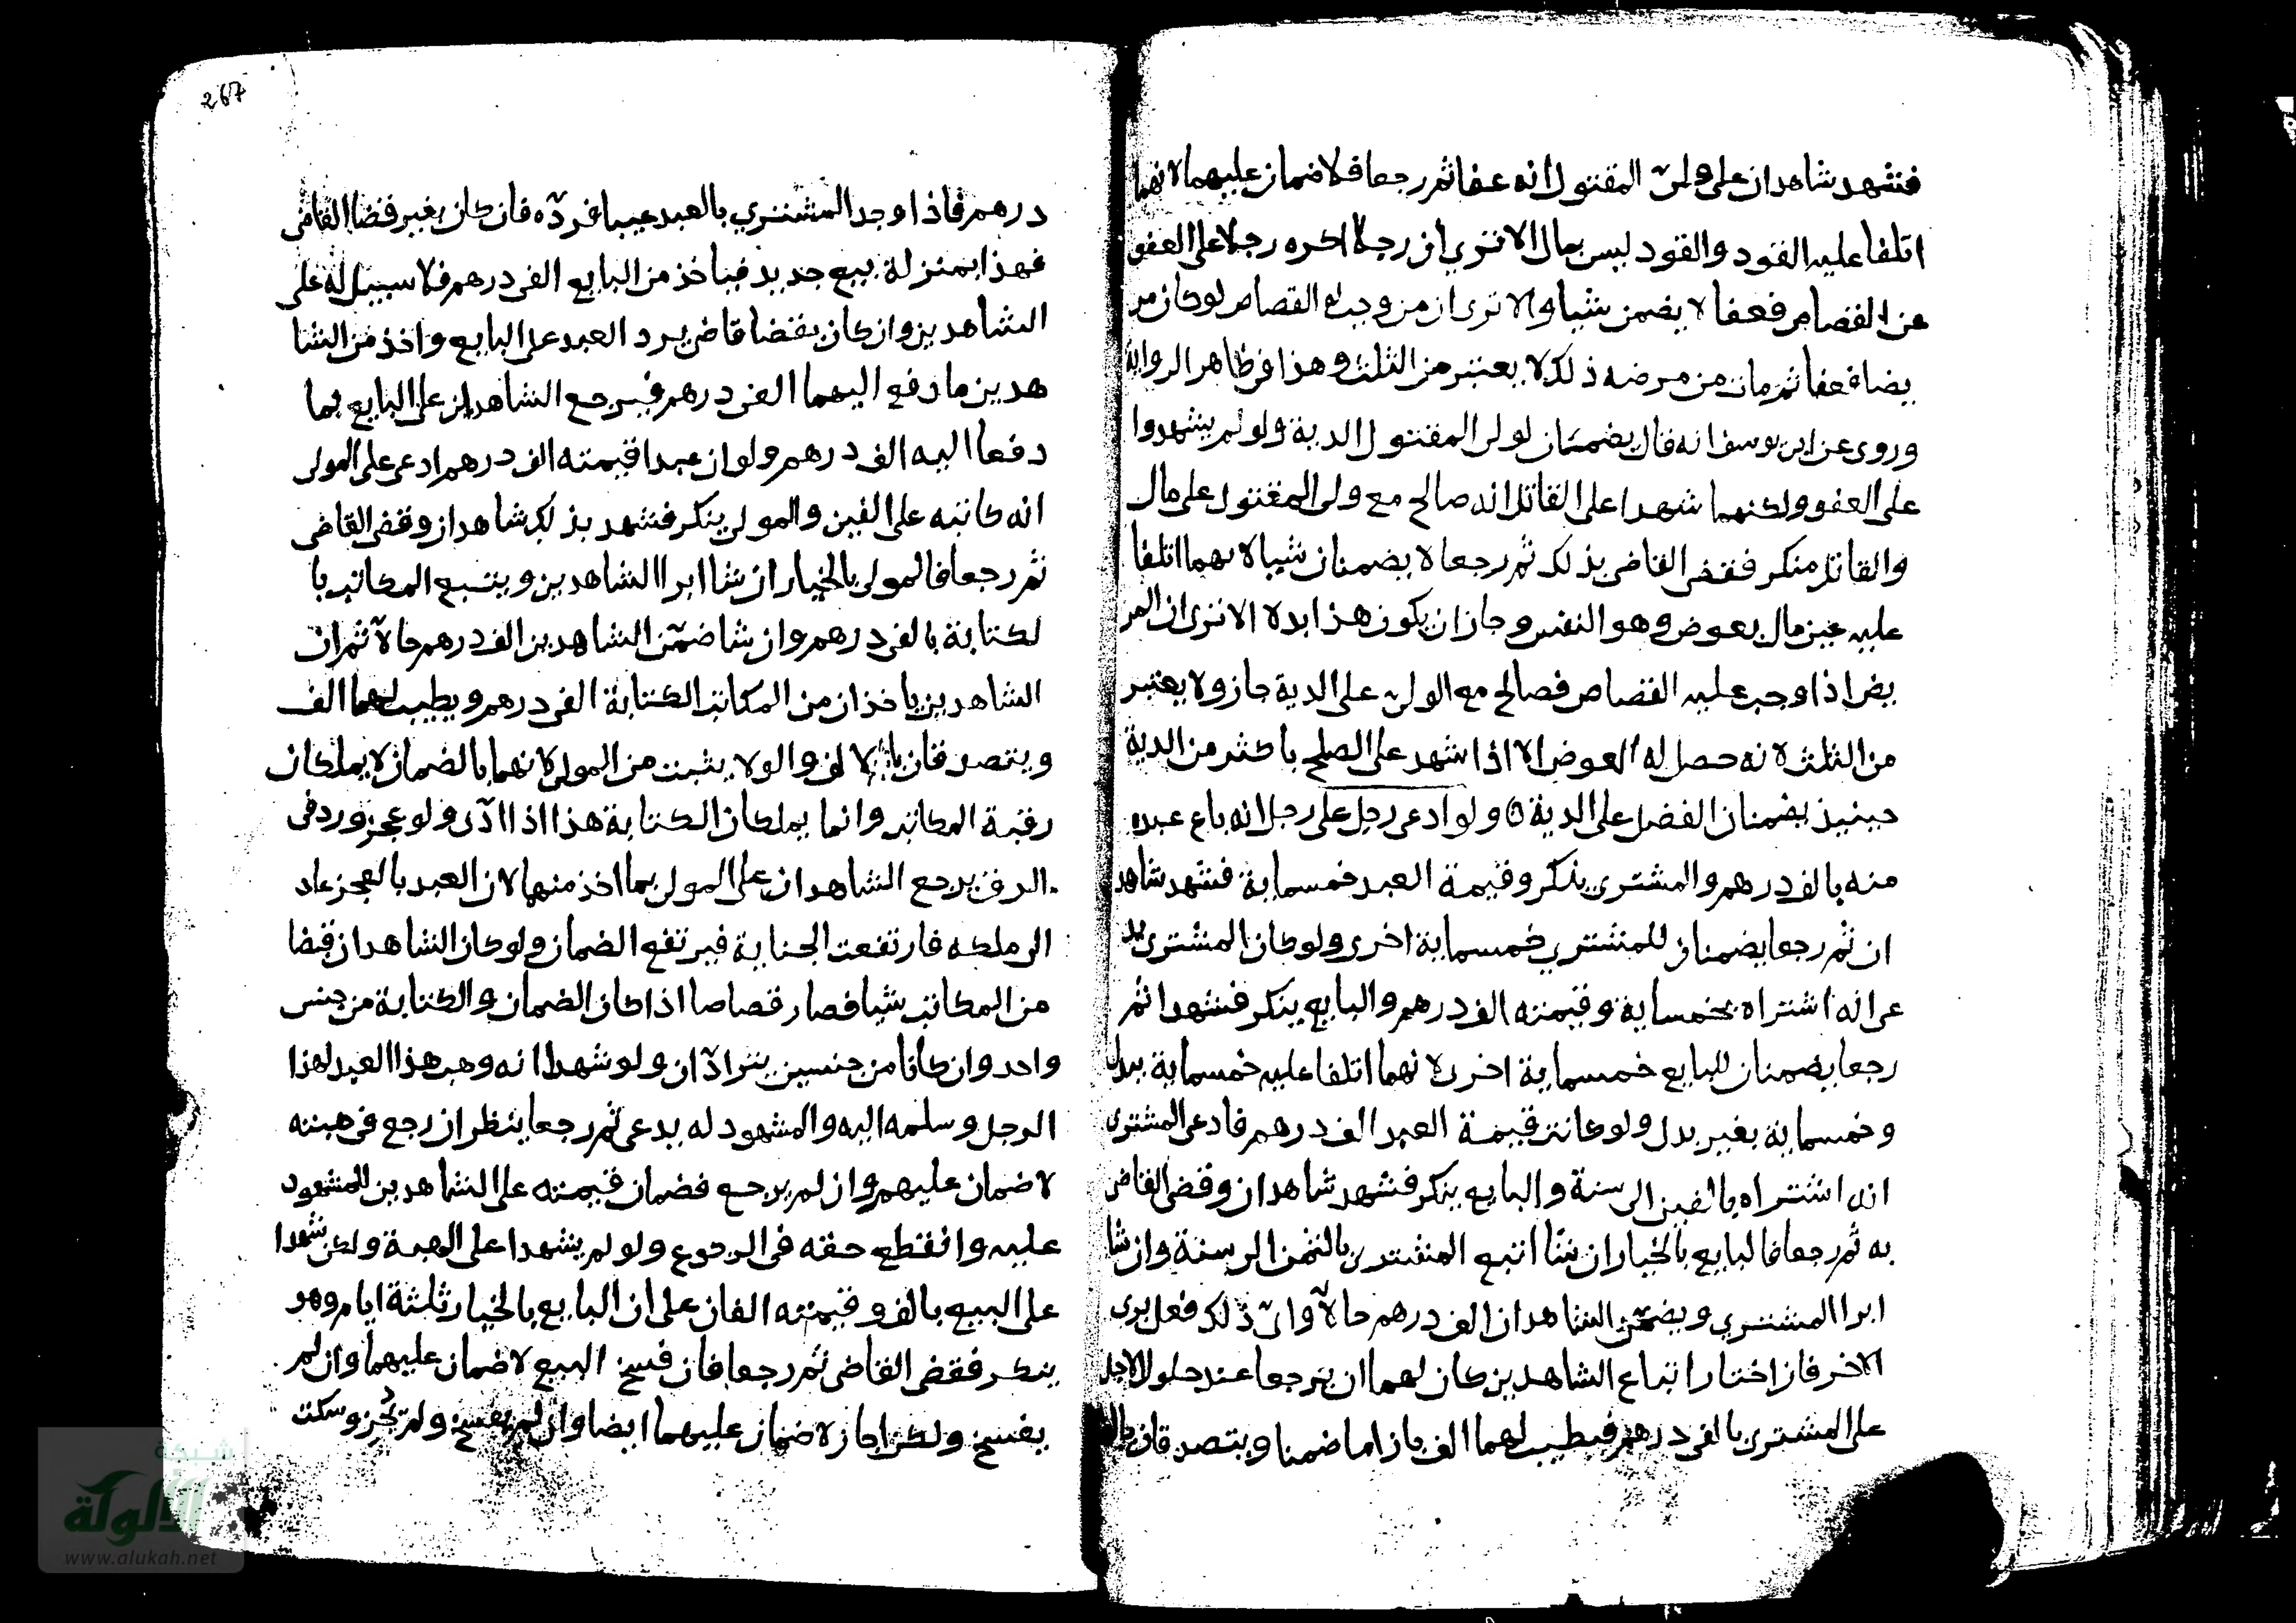 فشهد شاهدان على ولىّ المقتول انه عفا ثم رجعا فلا ضمان عليهما لانهما
اتلفا عليه القود والقود ليس بمال الا ترى ان رجلا اكره رجلا على العفو
عن القصاص فعفا لا يضمن شيا والا ترى ان من وجب له القصاص لو كان مر
يضا فعفا ثم مات من مرضه ذلك لا يعتبر من الثلث وهذا فى ظاهر الرواية
وروى عن ابى يوسف انه قال يضمنان لولى المقتول الدية ولو لم يشهدوا
على العفو ولكنهما شهدا على القاتل انه صالح مع ولى المقتول على مال
والقاتل منكر فقضى القاضى بذلك ثم رجعا لا يضمنان شيا لانهما اتلفا
عليه عين مال بعوض وهو النفس وجاز ان يكون هذا بدلا الا ترى ان المر
يض اذا وجب عليه القصاص فصالح مع الولى على الدية جاز ولا يعتبر
من الثلث لانه حصل له العوض الا اذا شهد على الصلح باكثر من الدية
حينيذ يضمنان الفضل على الدية ولو ادعى رجل على رجل انه باع عبده
منه بالف درهم والمشترى ينكر وقيمة العبد خمسماية فشهد شاهد
ان ثم رجعا يضمنان للمشترى خمسماية اخرى ولو كان المشترى يد
عى انه اشتراه بخمسماية وقيمته الف درهم والبايع ينكر فشهدا ثم
رجعا يضمنان للبايع خمسماية اخرى لانهما اتلفا عليه خمسماية ببدل
وخمسماية بغير بدل ولو كانت قيمة العبد الف درهم فادعى المشترى
انه اشتراه بالفين الى سنة والبايع ينكر فشهد شاهدان وقضى القاضى
به ثم رجعا فالبايع بالخيار ان شا اتبع المشترى بالثمن الى سنة وان شا
ابرا المشترى ويضمن الشاهدان الف درهم حالّا واىّ ذلك فعل برى
الاخر فان اختار اتباع الشاهدين كان لهما ان يرجعا عند حلول الاجل
على المشترى بالفى درهم فيطيب لهما الف بازا ما ضمنا ويتصدقان بالف
267
درهم فاذا وجد المشترى بالعبد عيبا فردّه فان كان بغير قضا القاضى
فهذا بمنزلة بيع جديد فياخذ من البايع الفى درهم فلا سبيل له على
الشاهدين وان كان بقضا قاض يرد العبد على البايع واخذ من الشا
هدين ما دفع اليهما الفى درهم فيرجع الشاهدان على البايع بما
دفعا اليه الف درهم ولو ان عبدا قيمته الف درهم ادعى على المولى
انه كاتبه على الفين والمولى ينكر فشهد بذلك شاهدان وقضى القاضى
ثم رجعا فالمولى بالخيار ان شا ابرا الشاهدين ويتبع المكاتب با
لكتابة بالفى درهم وان شا ضمّن الشاهدين الف درهم حالّا ثم ان
الشاهدين ياخذان من المكاتب الكتابة الفى درهم ويطيب لهما الف
ويتصدقان بالالف والولا يثبت من المولى لانهما بالضمان لا يملكان
رقبة المكاتب وانما يملكان الكتابة هذا اذا ادّى ولو عجز ورد فى
الرق يرجع الشاهدان على المولى بما اخذ منهما لان العبد بالعجز عاد
الى ملكه فارتفعت الجناية فيرتفع الضمان ولو كان الشاهدان قبضا
من المكاتب شيا فصار قصاصا اذا كان الضمان والكتابة من جنس
واحد وان كانا من جنسين يترادّان ولو شهدا انه وهب هذا العبد لهذا
الرجل وسلمه اليه والمشهود له يدعى ثم رجعا ينظر ان رجع فى هبته
لا ضمان عليهم وان لم يرجع فضمان قيمته على الشاهدين للمشهود
عليه وانقطع حقه فى الرجوع ولو لم يشهدا على الهبة ولكن شهدا
على البيع بالف وقيمته الفان على ان البايع بالخيار ثلثة ايام وهو
ينكر فقضى القاضى ثم رجعا فان فسخ البيع لا ضمان عليهما وان لم
يفسخ ولكن اجاز لا ضمان عليهما ايضا وان لم يفسخ ولم يجز وسكت
شبكة
الألوكة
www.alukah.net